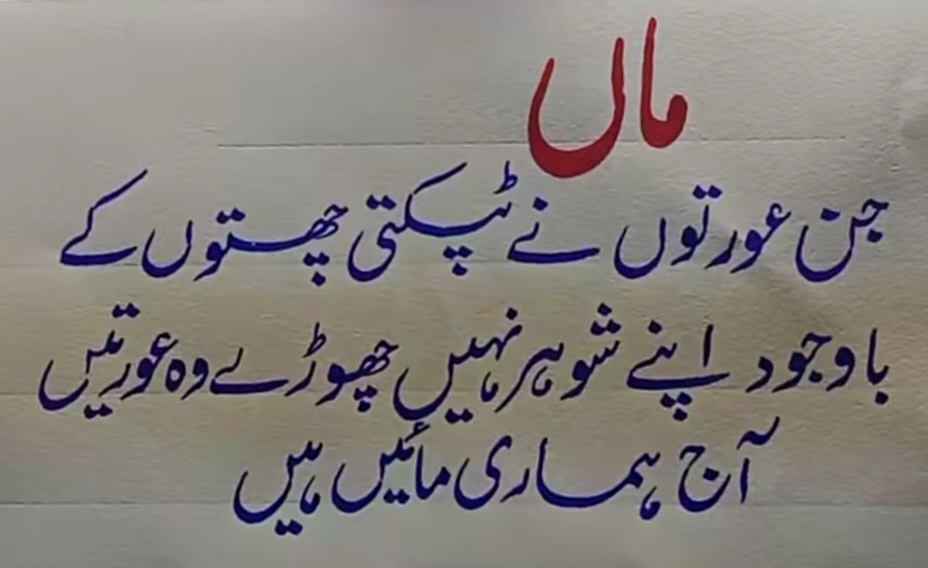 ماں
جن عورتوں نے ٹپکتی چھتوں کے
باوجود اپنے شوہر نہیں چھوڑے وہ عورتیں
آج ہماری مائیں ہیں